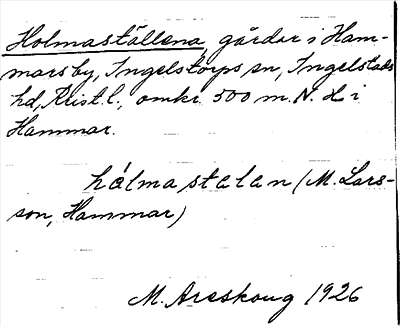 Holmaställena, gårdar i Ham-
marsby, Ingelstorps sn, Ingelstads
hd, Krist. l., omkr. 500 m. N.
Hammar.
hólmastalan (M. Lars-
son, Hammar)
M. Areskoug 1926